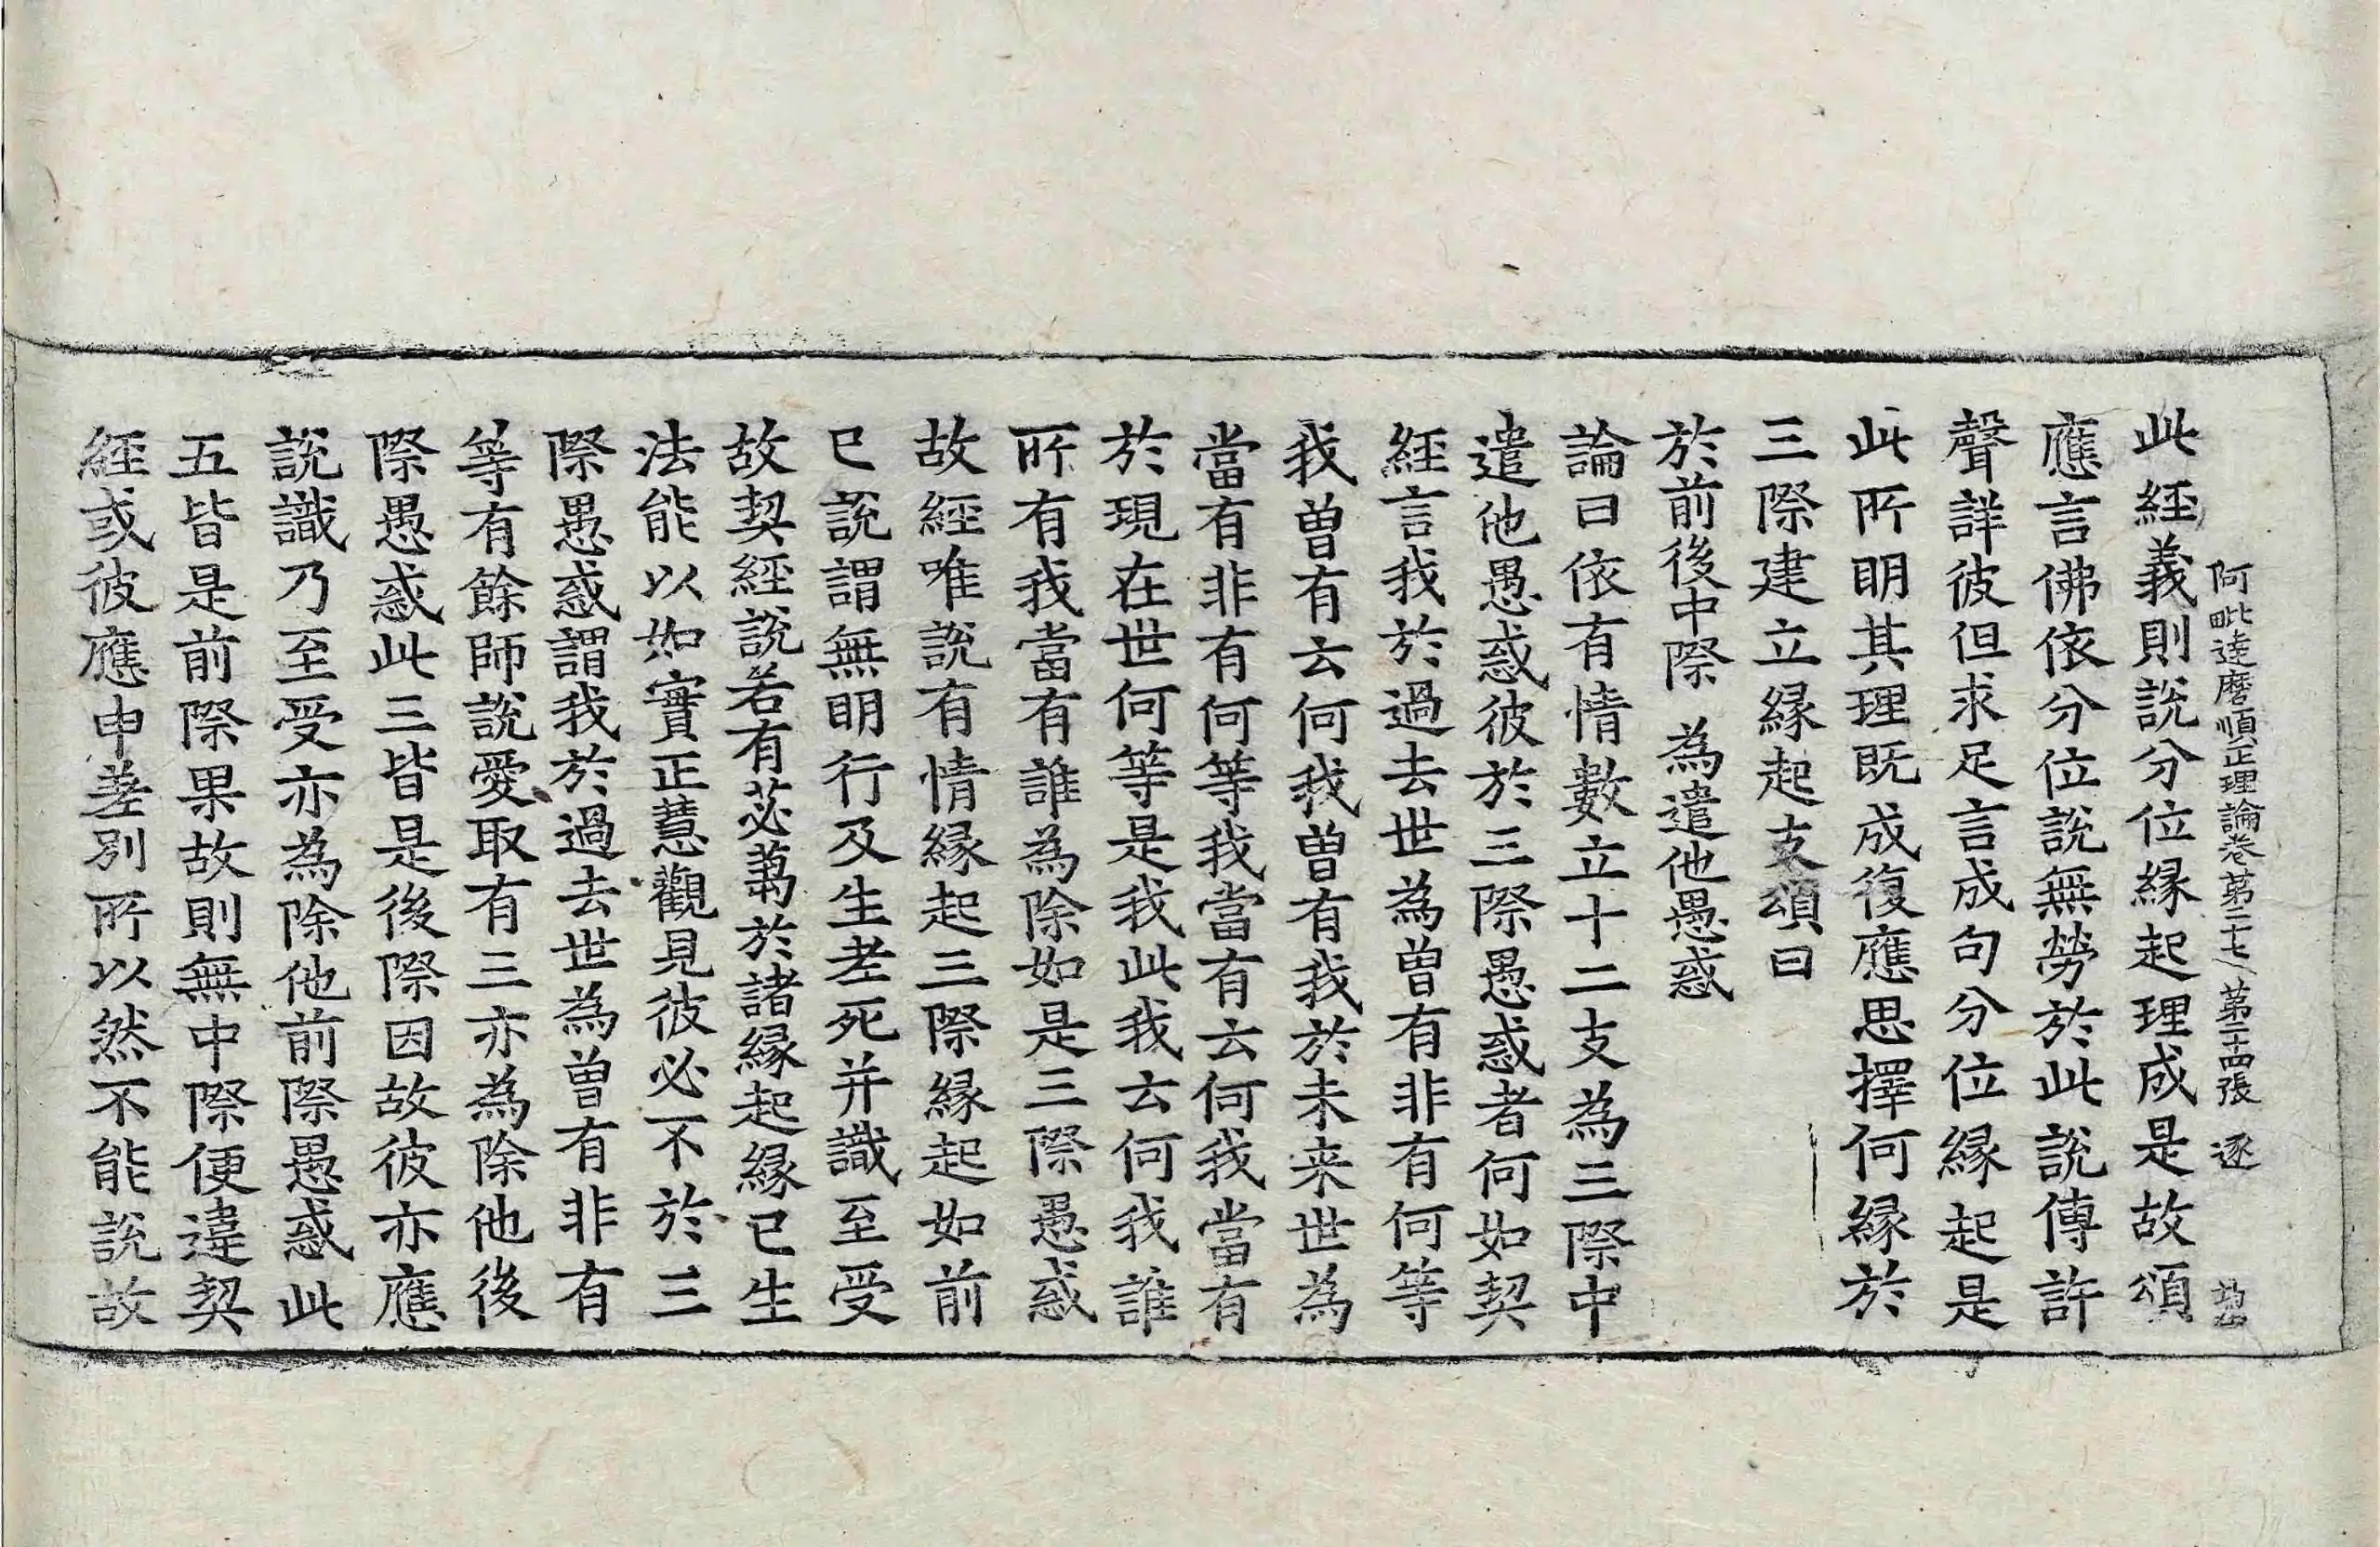 阿毗達磨順正理論卷第二十七 第二十四張 逐
此経義則說分位縁起理成是故頌
應言佛依分位說無勞於此說傳許
聲詳彼但求足言成句分位縁起是
此所明其理既成復應思擇何縁於
三際建立縁起支頌曰
於前後中際 為遣他愚惑
論曰依有情數立十二支為三際中
遣他愚惑彼於三際愚惑者何如契
経言我於過去世為曾有非有何等
我曾有云何我曾有我於未来世為
當有非有何等我當有云何我當有
於現在世何等是我此我云何我誰
所有我當有誰為除如是三際愚惑
故經唯說有情縁起三際縁起如前
已說謂無明行及生老死并識至受
故契経說若有苾蒭於諸縁起縁已生
法能以如實正慧觀見彼必不於三
際愚惑謂我於過去世為曾有非有
等有餘師說愛取有三亦為除他後
際愚惑此三皆是後際因故彼亦應
說識乃至受亦為除他前際愚惑此
五皆是前際果故則無中際便違契
経或彼應申差別所以然不能說故